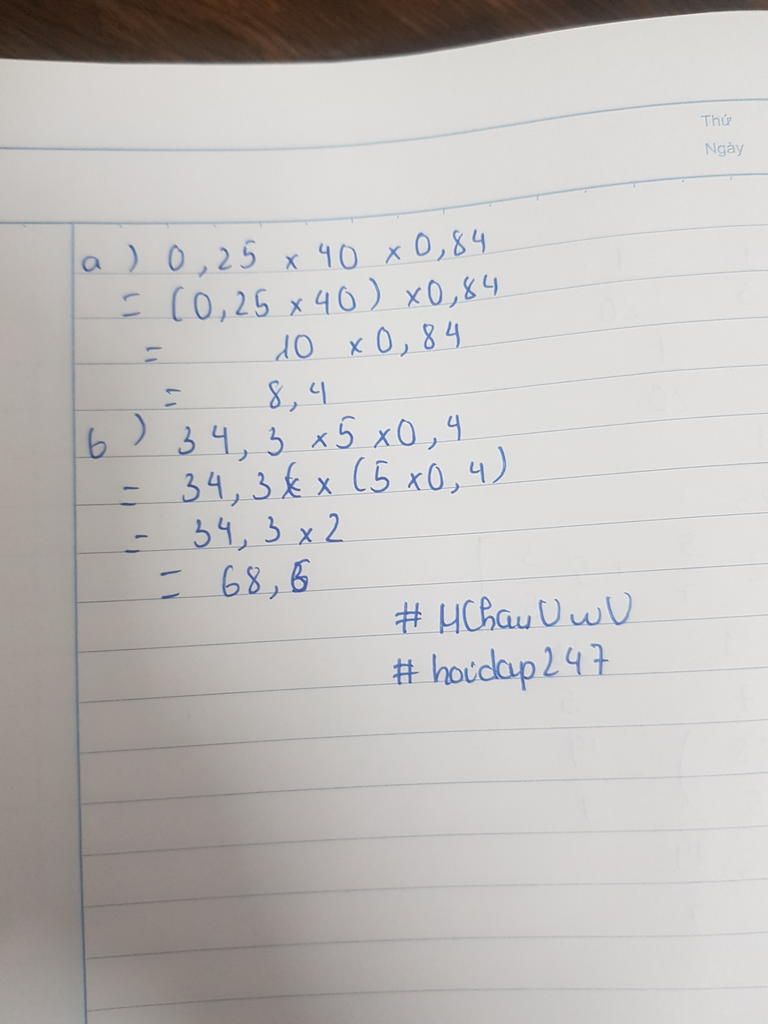 Thứ
Ngày
a) 0,25 × 40 × 0,84
= (0,25 × 40) × 0,84
= 10 × 0,84
= 8,4
b) 34,3 × 5 × 0,4
= 34,3 × (5 × 0,4)
= 34,3 × 2
= 68,6
# MChauUwU
# hoidap247